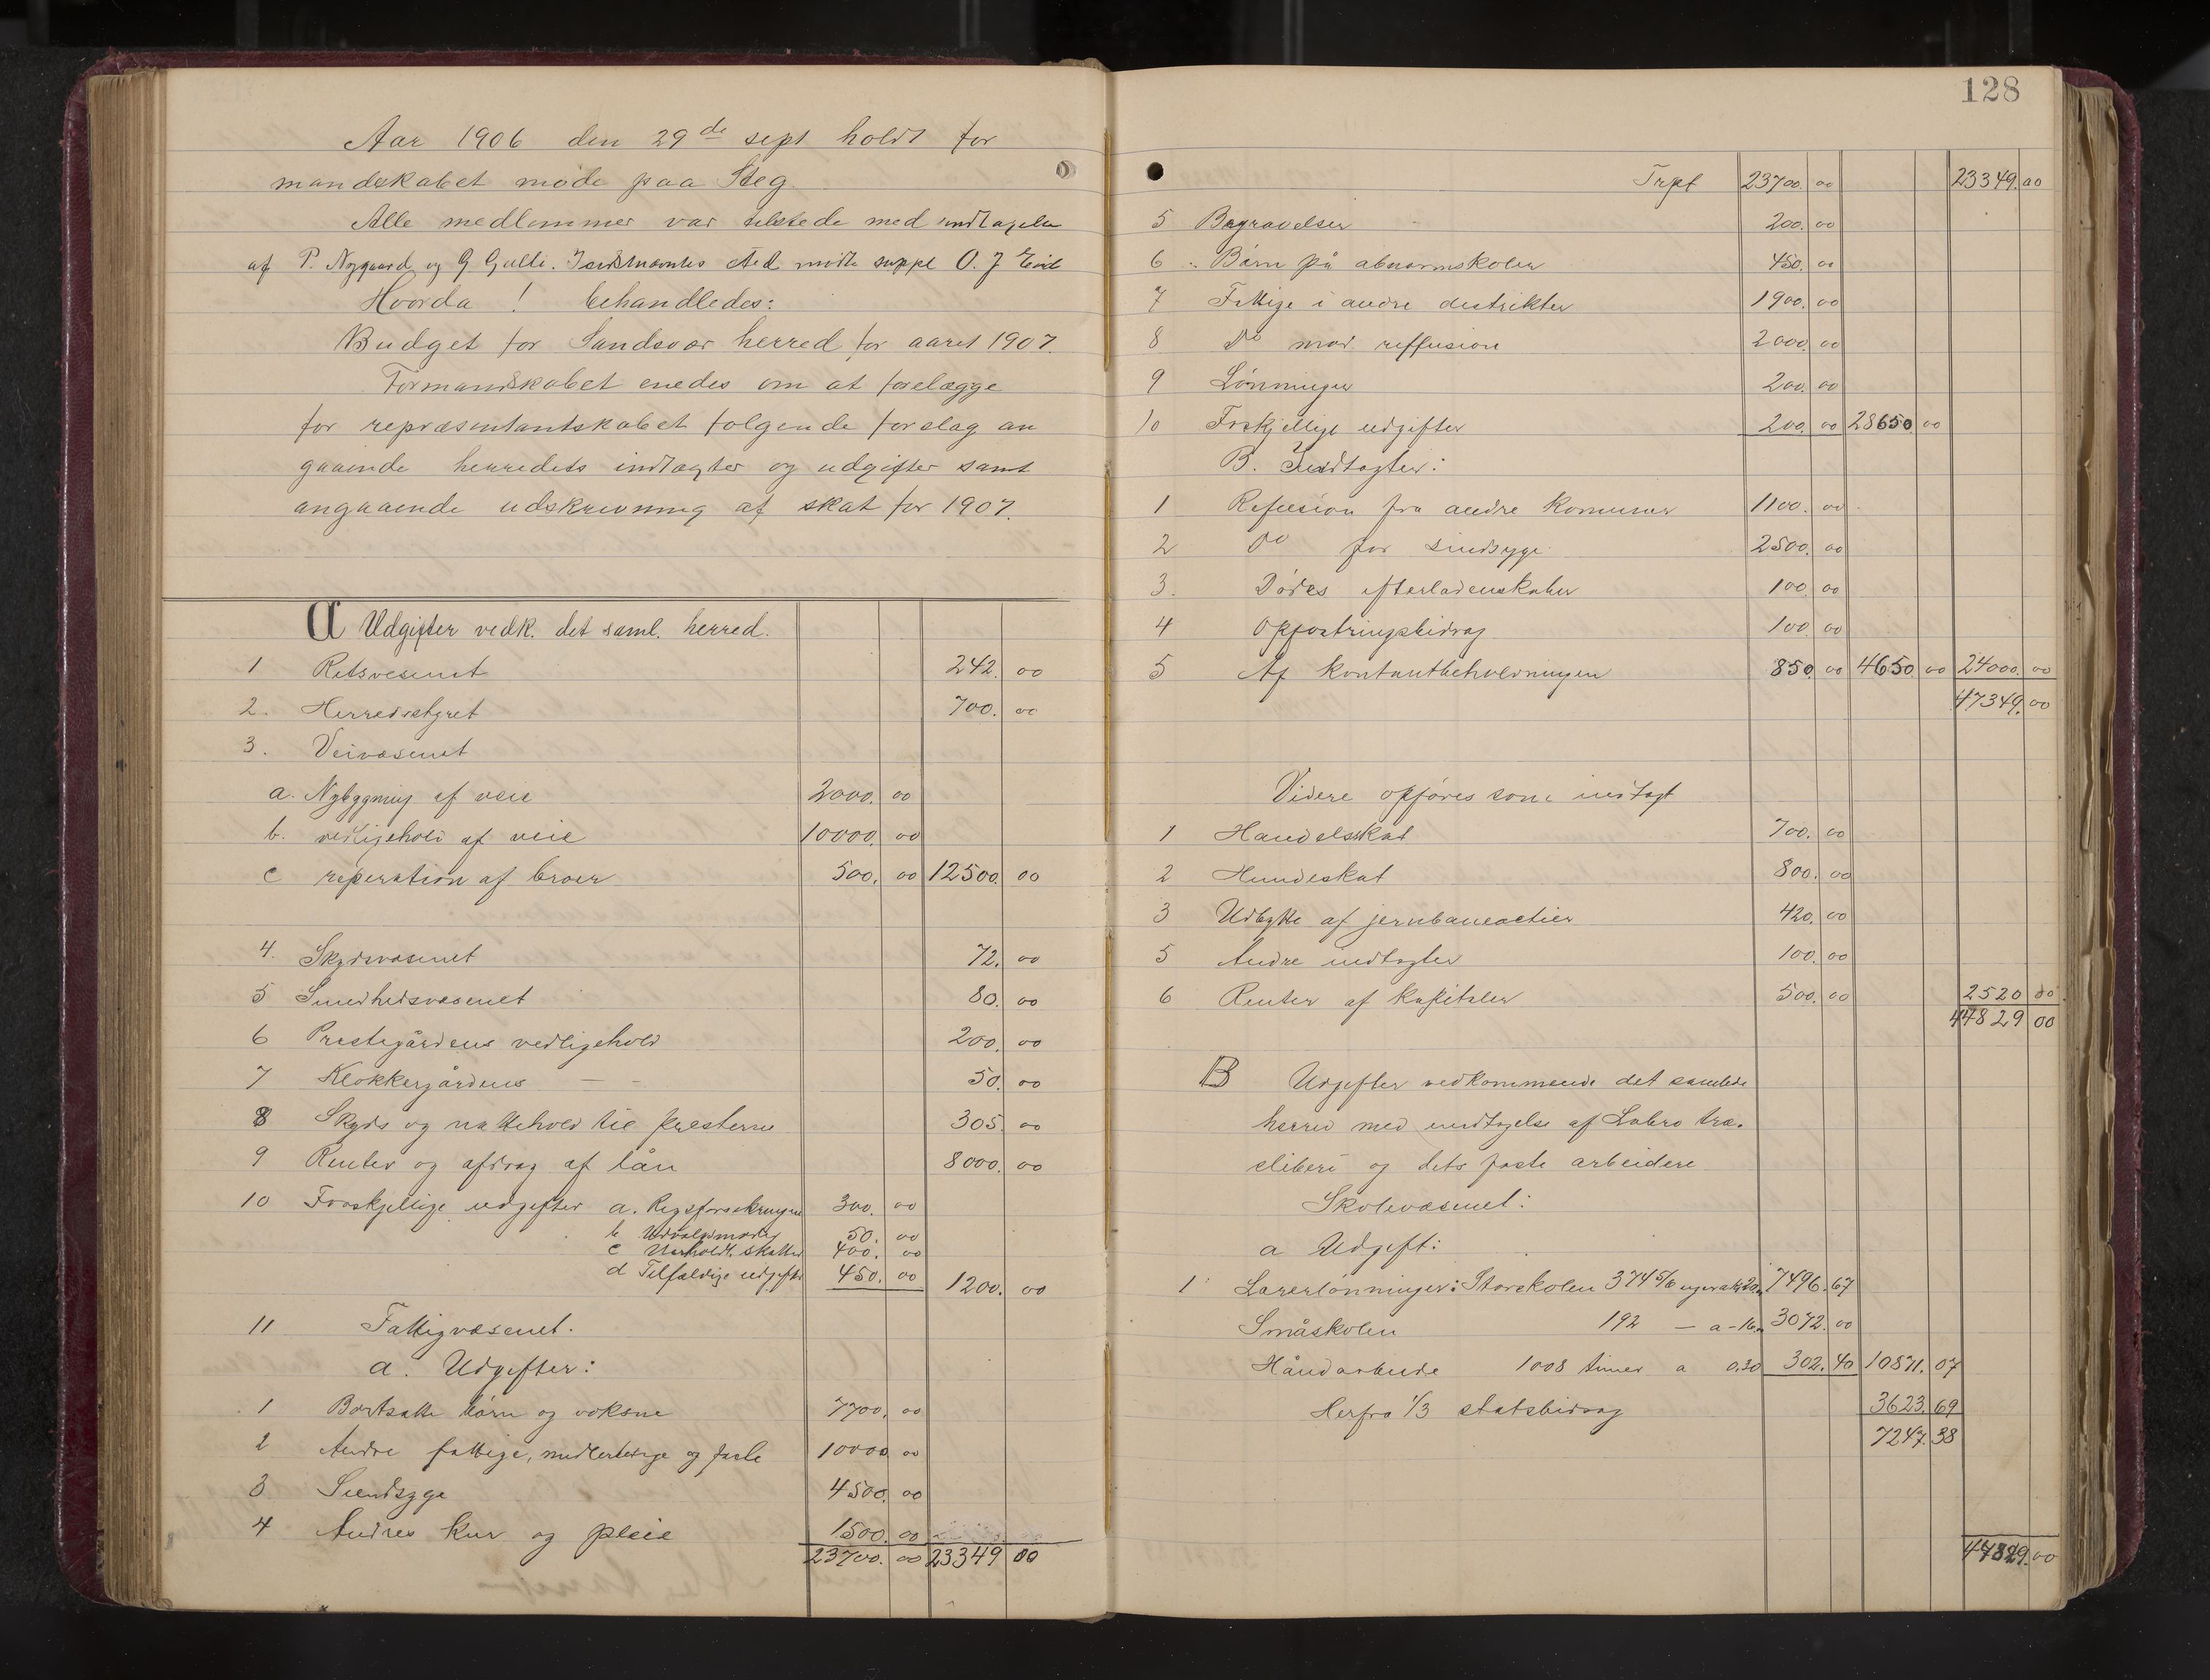 Aar 1906 den 29de sept holdt for
mandskabet møde paa Steg
Alle medlemmer var tilstede med undtagelse
af P. Nygaard og G Gulli. Istedet møtte suppl O. J.
Hvorda! behandledes:
Budget for Sandsvær herred for aaret 1907.
Formandskabet enedes om at forelægge
for repræsentantskabet følgende forslag an
gaaende herredets indtægter og udgifter samt
angaaende udskrivning af skat for 1907.
A Udgifter vedk. det saml. herred.
1 Retsvesenet 242. 00
2. Herredsstyret 700. 00
3. Veivæsenet
a. Nybygning af veie 2000. 00
b. vedligehold af veie 10000. 00
c reperation af broer 500. 00 12500. 00
4. Skydsvæsenet 72. 00
5 Sundhedsvæsenet 80. 00
6 Prestegårdens vedligehold 200. 00
7 Klokkergårdens — - 50. 00
8 Skyds og nattehold til presterne 305. 00
9 Renter og afdrag af lån 8000. 00
10 Forskjellige udgifter a. Regsforsikringen 300. 00
b Udvalgsmøder 50. 00
c Uerholdt. skatter 400. 00
d Tilfældige udgifter 450. 00 1200. 00
11 Fattigvæsenet.
a. Udgifter:
1 Bortsatte børn og voksne 7700. 00
2 Andre fattige, midlertidige og faste 10000 00
3 Sindsyge 4500. 00
4 Andres kur og pleie 1500. 00
23700. 00 23349 00
128
Trpt 23700. 00 23349. 00
5 Begravelser 200. 00
6 Børn på abnormskoler 450. 00
7 Fattige i andre destrikter 1900. 00
8 Do mod reffusion 2000. 00
9 Lønninger 200. 00
10 Forskjellige udgifter 200. 00 28650. 00
B. Indtægter:
1 Refusion fra andre kommuner 1100. 00
2 Do for sindsyge 2500. 00
3. Dødes efterladenskaber 100. 00
4 Opfostringsbidrag 100. 00
5 Af kontantbeholdningen 850. 00 4650. 00 24000. 00
47349. 00
Videre opføres som indtægt
1 Handelsskat 700. 00
2 Hundeskat 800. 00
3 Udbytte af jernbaneactier 420. 00
5 Andre indtægter 100. 00
6 Renter af kapitaler 500. 00 2520 00
44829 00
B Udgifter vedkommende det samlede
herred med undtagelse af Labro træ-
sliberi og dets faste arbeidere
Skolevæsenet:
a Udgift:
1 Lærerlønninger: Storskolen 374 5/6 uger a kr 20. 7496. 67
Småskolen 192 — a - 16. 3072. 00
Håndarbeide 1008 timer a 0.30 302. 40 10871. 07
Herfra 1/3 statsbidrag 3623. 69
7247. 38
44829. 00